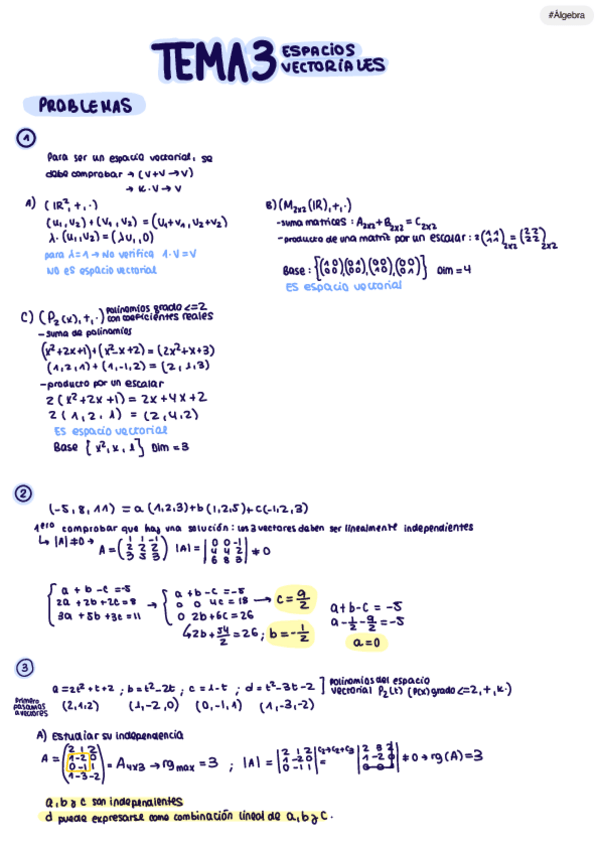 #Álgebra
TEMA 3 ESPACIOS VECTORIALES
PROBLEMAS
1
Para ser un espacio vectorial, se
debe comprobar → (V+V → V)
→ K·V → V
A) (IR², +, ·)
(u₁, u₂) + (v₁, v₂) = (u₁+v₁, u₂+v₂)
λ·(u₁, u₂) = (λu₁, 0)
para λ=1 → No verifica 1·V = V
NO es espacio vectorial
B) (M₂ₓ₂(IR), +, ·)
-suma matrices : A₂ₓ₂ + B₂ₓ₂ = C₂ₓ₂
-producto de una matriz por un escalar : 2(1 1; 1 1)₂ₓ₂ = (2 2; 2 2)₂ₓ₂
Base : {(1 0; 0 0)(0 1; 0 0)(0 0; 1 0)(0 0; 0 1)} Dim = 4
ES espacio vectorial
C) (P₂(x), +, ·) polinomios grado <=2 con coeficientes reales
-suma de polinomios
(x²+2x+1)+(x²-x+2) = (2x²+x+3)
(1,2,1) + (1,-1,2) = (2,1,3)
-producto por un escalar
2(x²+2x+1) = 2x+4x+2
2(1,2,1) = (2,4,2)
Es espacio vectorial
Base {x², x, 1} Dim = 3
2
(-5, 8, 11) = a(1,2,3)+b(1,2,5)+c(-1,2,3)
1ero comprobar que hay una solución: los 3 vectores deben ser linealmente independientes
↳ |A| ≠ 0 → A = (1 1 -1; 2 2 2; 3 5 3) |A| = |0 0 -1; 4 4 2; 6 8 3| ≠ 0
{a + b - c = -5 → {a + b - c = -5 → c = 9/2
2a + 2b + 2c = 8 0 0 4c = 18
3a + 5b + 3c = 11 0 2b + 6c = 26
↳ 2b + 54/2 = 26 ; b = -1/2
a+b-c = -5
a - 1/2 - 9/2 = -5
a=0
3
a = 2t²+t+2 ; b = t²-2t ; c = 1-t ; d = t²-3t-2 ] Polinomios del espacio vectorial P₂(t) (P(x) grado <=2, +, K·)
Primero pasamos a vectores (2,1,2) (1,-2,0) (0,-1,1) (1,-3,-2)
A) Estudiar su independencia
A = (2 1 2; 1 -2 0; 0 -1 1; 1 -3 -2) = A₄ₓ₃ → rg max = 3 ; |A| = |2 1 2; 1 -2 0; 0 -1 1| C₂→C₂+C₃ = |2 3 2; 1 -2 0; 0 0 1| ≠ 0 → rg(A) = 3
a, b y c son independientes
d puede expresarse como combinación lineal de a, b y c.